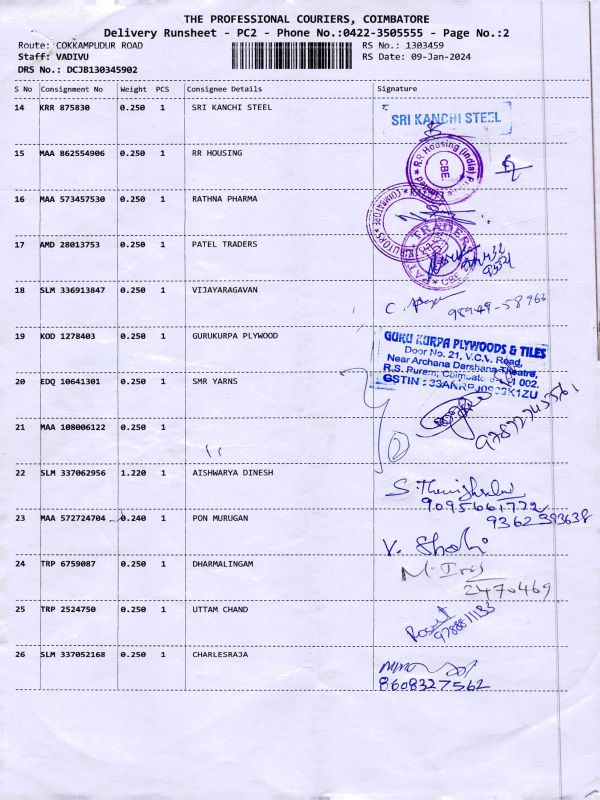 THE PROFESSIONAL COURIERS, COIMBATORE
Delivery Runsheet - PC2 - Phone No.:0422-3505555 - Page No.:2
Route: COKKAMPUDUR ROAD
RS No.: 1303459
Staff: VADIVU
RS Date: 09-Jan-2024
DRS No.: DCJB130345902
S No Consignment No Weight PCS Consignee Details Signature
14 KRR 875830 0.250 1 SRI KANCHI STEEL
SRI KANCHI STEEL
15 MAA 862554906 0.250 1 RR HOUSING
RR Housing (India) P
CBE
16 MAA 573457530 0.250 1 RATHNA PHARMA
COIMBATORE
17 AMD 28013753 0.250 1 PATEL TRADERS
CBE
18 SLM 336913847 0.250 1 VIJAYARAGAVAN
98949-58966
19 KOD 1278403 0.250 1 GURUKURPA PLYWOOD
GURU KURPA PLYWOODS & TILES
Door No. 21, V.C.V. Road,
Near Archana Darshana Theatre,
R.S. Puram,
GSTIN :
20 EDQ 10641301 0.250 1 SMR YARNS
21 MAA 108006122 0.250 1
22 SLM 337062956 1.220 1 AISHWARYA DINESH
9095661772
23 MAA 572724704 0.240 1 PON MURUGAN
9362393638
24 TRP 6759087 0.250 1 DHARMALINGAM
2470469
25 TRP 2524750 0.250 1 UTTAM CHAND
26 SLM 337052168 0.250 1 CHARLESRAJA
8608327562